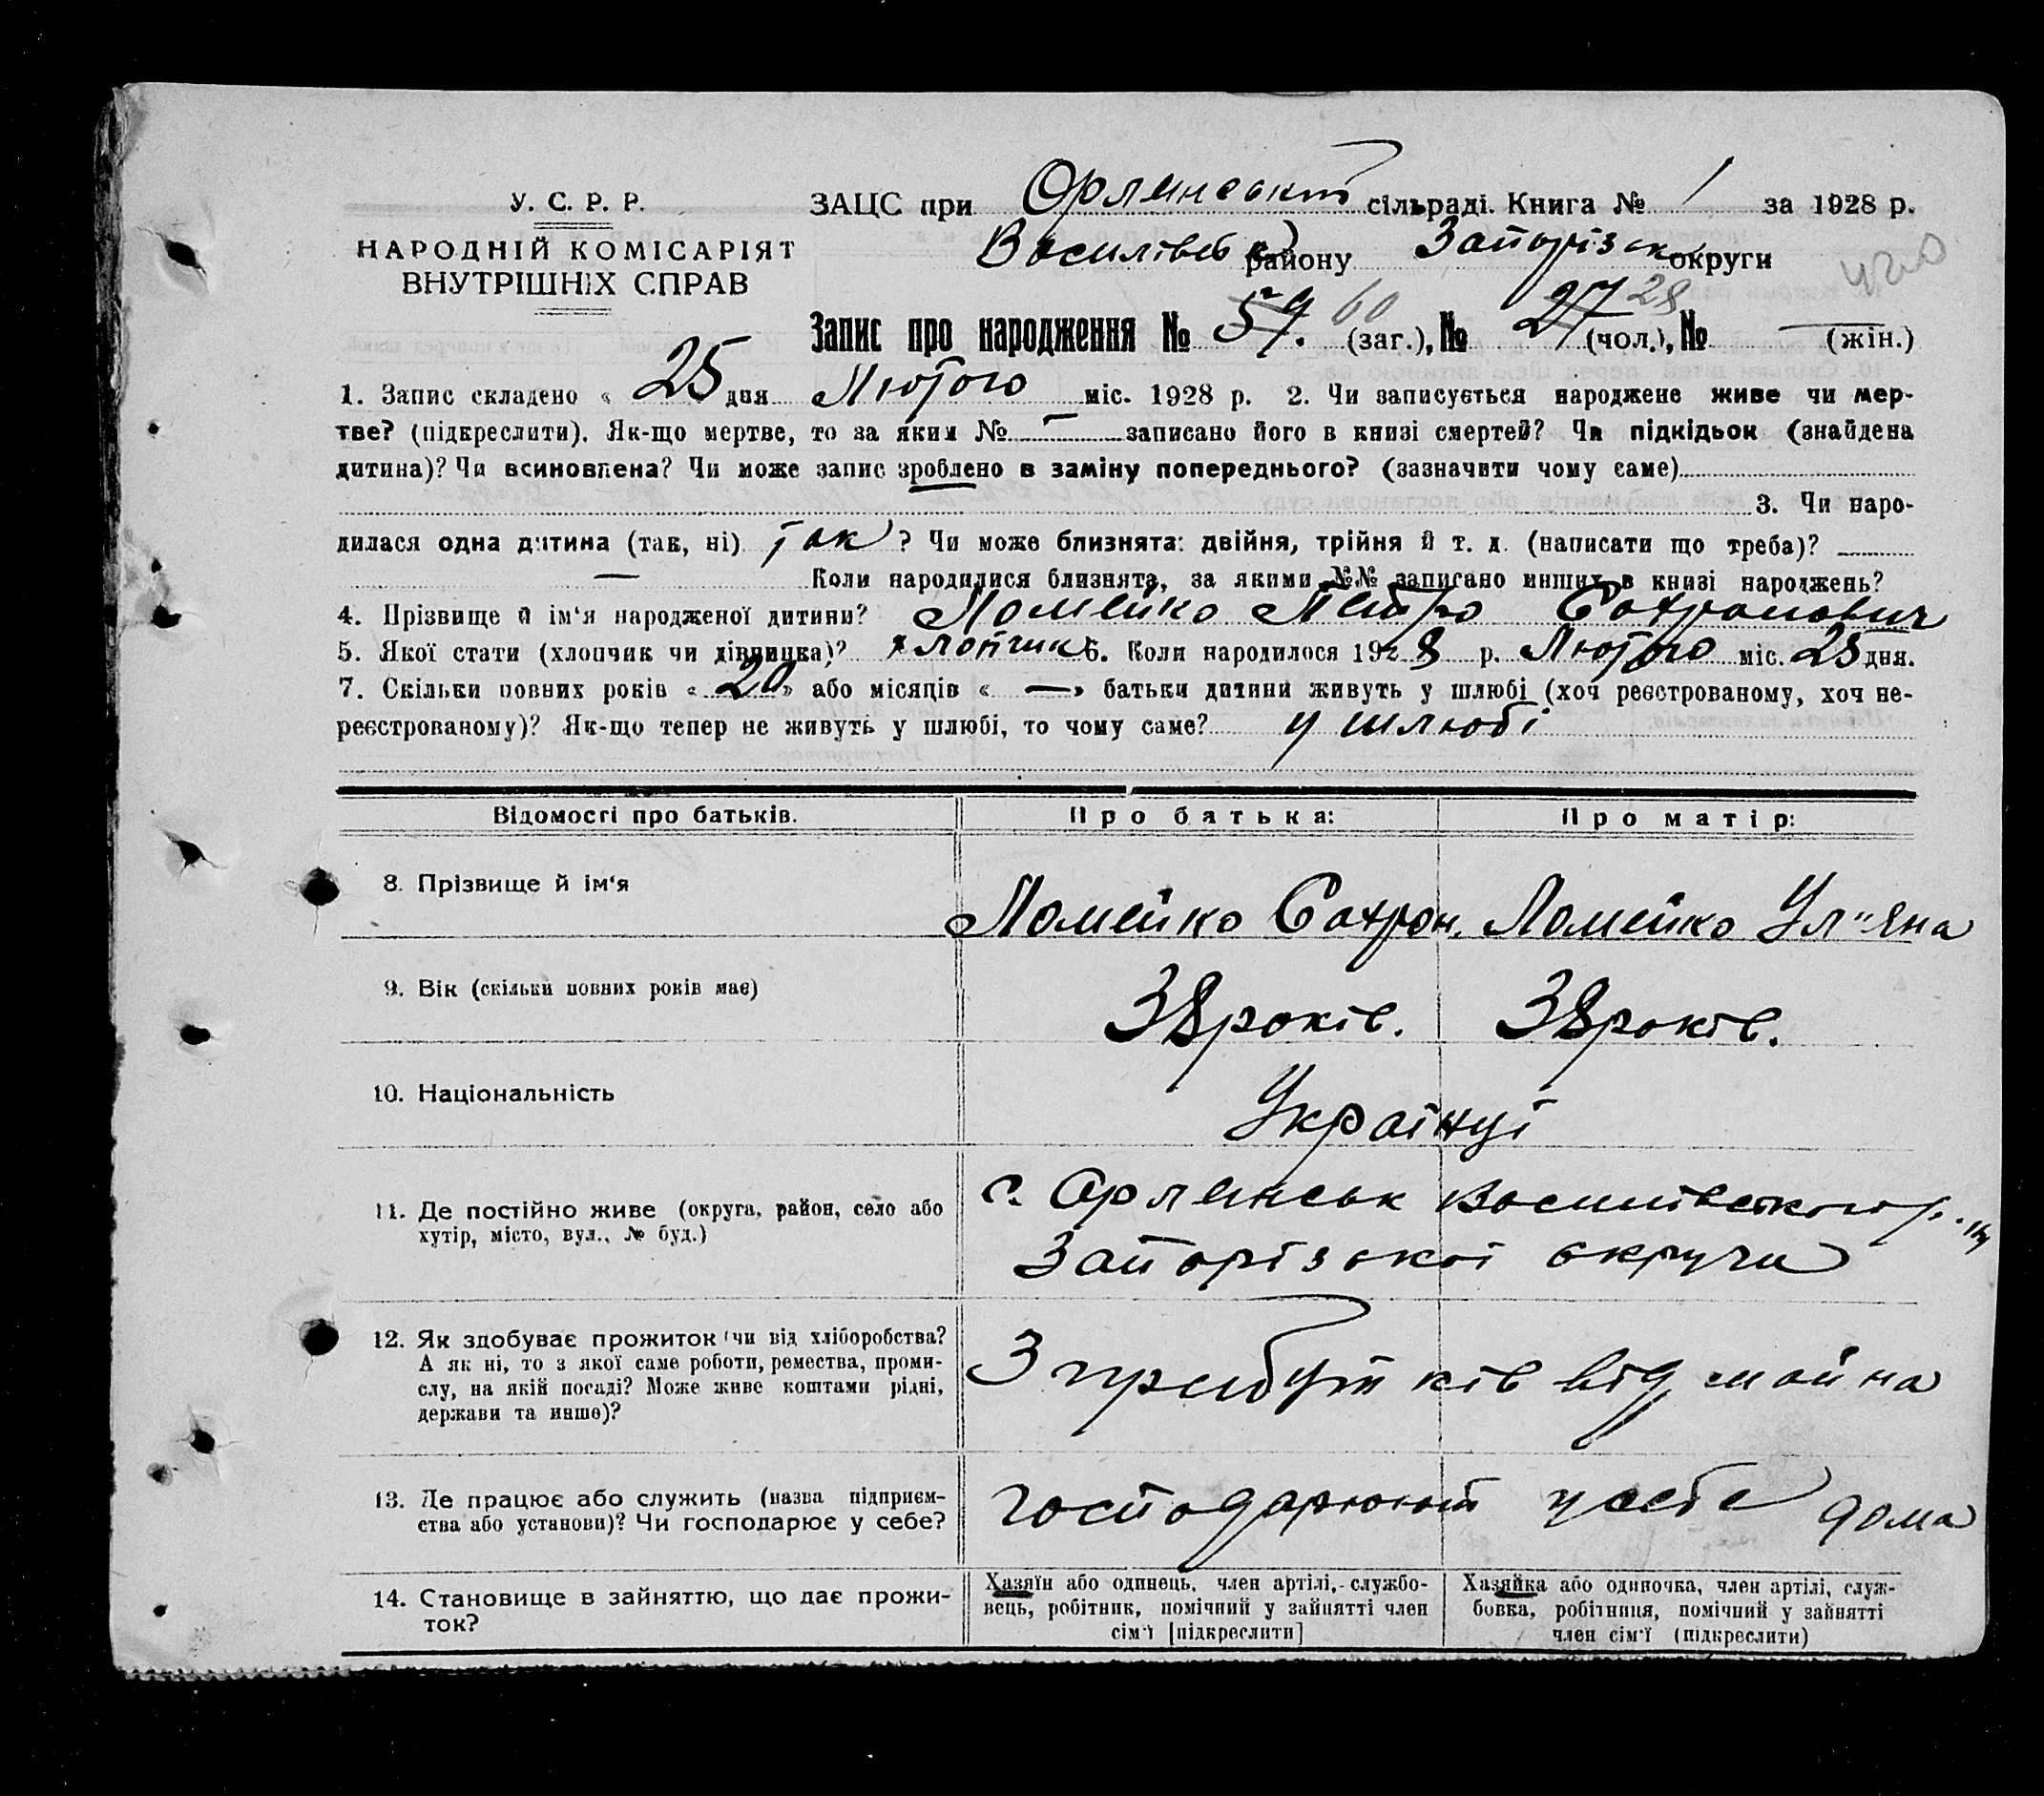 У. С. Р. Р.
НАРОДНІЙ КОМІСАРІЯТ
ВНУТРІШНІХ СПРАВ
ЗАЦС при Орлянській сільраді. Книга № 1 за 1928 р.
Василівськ району Запорізьк округи
Запис про народження № 59. 60 (заг.), № 27 28 (чол.), № — (жін.)
1. Запис складено « 25 дня Лютого міс. 1928 р. 2. Чи записується народжене живе чи мер-
тве? (підкреслити). Як-що мертве, то за яким № — записано його в книзі смертей? Чи підкідьок (знайдена
дитина)? Чи всиновлена? Чи може запис зроблено в заміну попереднього? (зазначити чому саме)
3. Чи наро-
дилася одна дитина (так, ні) так ? Чи може близнята: двійня, трійня й т. д. (написати що треба)?
— Коли народилися близнята, за якими №№ записано инших в книзі народжень?
4. Прізвище й ім'я народженої дитини? Ломейко Петро Сахронович
5. Якої стати (хлопчик чи дівчинка)? хлопчик 6. Коли народилося 1928 р. Лютого міс. 25 дня.
7. Скільки повних років « 20 » або місяців « — » батьки дитини живуть у шлюбі (хоч реєстрованому, хоч не-
реєстрованому)? Як-що тепер не живуть у шлюбі, то чому саме? у шлюбі
Відомості про батьків. Про батька: Про матір:
8. Прізвище й ім'я Ломейко Сахрон. Ломейко Ул"яна
9. Вік (скільки повних років має) 38 років. 38 років.
10. Національність Українці
11. Де постійно живе (округа, район, село або
хутір, місто, вул., № буд.)
с. Орлянськ Василівского р.
Запорізької округи
12. Як здобуває прожиток (чи від хліборобства?
А як ні, то з якої саме роботи, ремества, проми-
слу, на якій посаді? Може живе коштами рідні,
держави та инше)?
З прибутків від майна
13. Де працює або служить (назва підприєм-
ства або установи)? Чи господарює у себе?
господарюют у себе дома
14. Становище в зайняттю, що дає прожи-
ток?
Хазяїн або одинець, член артілі, службо-
вець, робітник, помічний у зайнятті член
сім'ї [підкреслити]
Хазяйка або одиночка, член артілі, служ-
бовка, робітниця, помічний у зайнятті
член сім'ї (підкреслити)